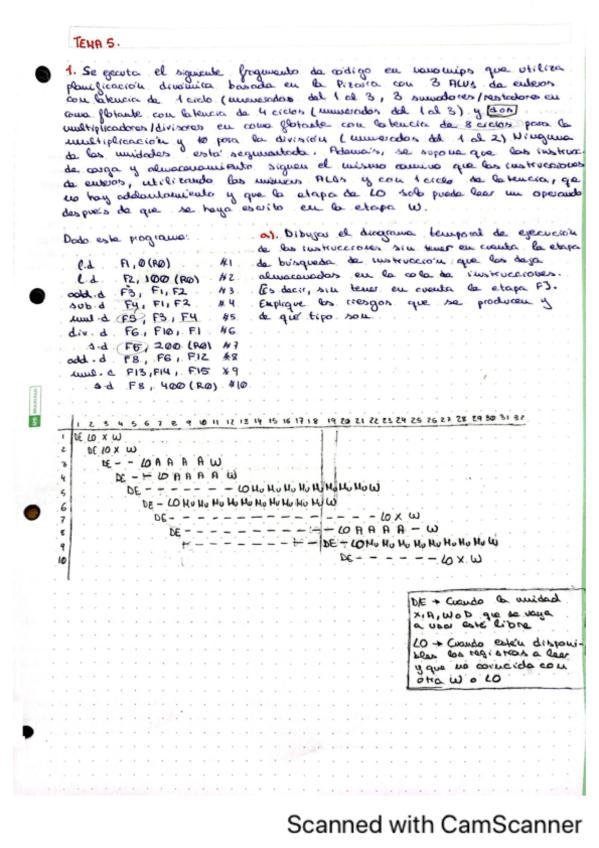 TEMA 5.
1. Se ejecuta el siguiente fragmento de código en nanomips que utiliza
planificación dinámica basada en la Pizarra con 3 ALUs de enteros
con latencia de 1 ciclo (numeradas del 1 al 3, 3 sumadores/restadores en
coma flotante con latencia de 4 ciclos (numerados del 1 al 3) y dos
multiplicadores/divisores en coma flotante con latencia de 8 ciclos para la
multiplicación y 10 para la división (numerados del 1 al 2) Ninguna
de las unidades está segmentada. Además, se supone que las instruc.
de carga y almacenamiento siguen el mismo camino que las instrucciones
de enteros, utilizando las mismas ALUs y con 1 ciclo de latencia, que
no hay adelantamiento y que la etapa de LO solo puede leer un operando
después de que se haya escrito en la etapa W.
Dado este programa:
l.d F1, 0(R0) #1
l.d F2, 100(R0) #2
add.d F3, F1, F2 #3
sub.d F4, F1, F2 #4
mul.d F5, F3, F4 #5
div.d F6, F10, F1 #6
s.d F5, 200(R0) #7
add.d F8, F6, F12 #8
mul.d F13, F14, F15 #9
s.d F8, 400(R0) #10
a). Dibujar el diagrama temporal de ejecución
de las instrucciones sin tener en cuenta la etapa
de búsqueda de instrucción, que las deja
almacenadas en la cola de instrucciones.
(Es decir, sin tener en cuenta la etapa F).
Explique los riesgos que se producen y
de qué tipo son.
1 2 3 4 5 6 7 8 9 10 11 12 13 14 15 16 17 18 19 20 21 22 23 24 25 26 27 28 29 30 31 32
1 DE LO X W
2 DE LO X W
3 DE - - LO A A A A W
4 DE - - LO A A A A W
5 DE - - - - - - LO Mu Mu Mu Mu Mu Mu Mu Mu W
6 DE - LO Mu Mu Mu Mu Mu Mu Mu Mu Mu Mu W
7 DE - - - - - - - - - - - - - LO X W
8 DE - - - - - - - - - - LO A A A A - W
9 - - - - - - - - - DE - LO Mu Mu Mu Mu Mu Mu Mu Mu W
10 DE - - - - - - LO X W
DE → Cuando la unidad
X, A, W o D que se vaya
a usar esté libre
LO → Cuando estén disponi-
bles los registros a leer
y que no coincida con
otra W o LO
Scanned with CamScanner